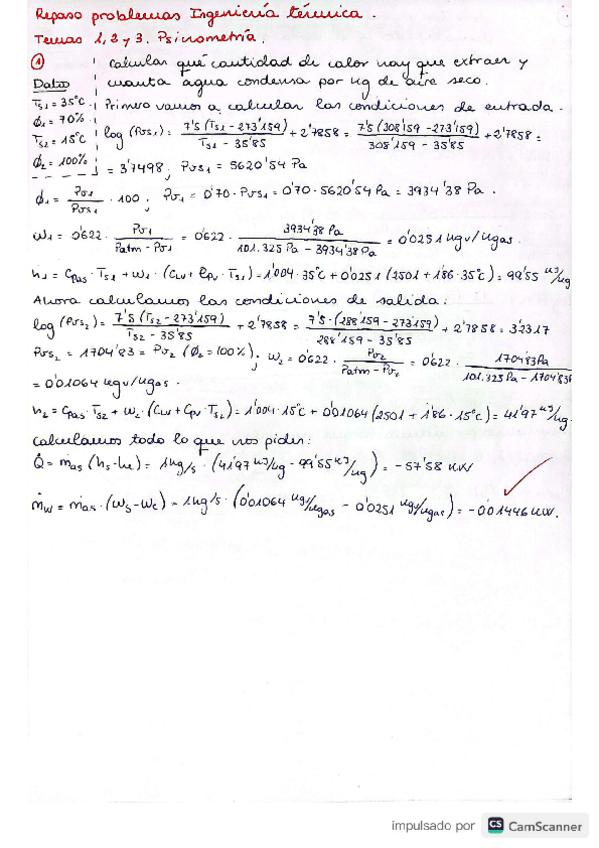 Repaso problemas Ingeniería térmica.
Temas 1, 2 y 3. Psicrometría.
① Calcular qué cantidad de calor hay que extraer y
cuanta agua condensa por kg de aire seco.
Datos
Ts1 = 35°C
ϕ1 = 70%
Ts2 = 15°C
ϕ2 = 100%
Primero vamos a calcular las condiciones de entrada.
log (Pvs1) = 7'5 (Ts1 - 273'159) / Ts1 - 35'85 + 2'7858 = 7'5 (308'159 - 273'159) / 308'159 - 35'85 + 2'7858 =
= 3'7498 ; Pvs1 = 5620'54 Pa
ϕ1 = Pv1 / Pvs1 · 100 ; Pv1 = 0'70 · Pvs1 = 0'70 · 5620'54 Pa = 3934'38 Pa.
W1 = 0'622 · Pv1 / Patm - Pv1 = 0'622 · 3934'38 Pa / 101.325 Pa - 3934'38 Pa = 0'0251 kgv/kgas.
h1 = Cpas · Ts1 + W1 · (Cw + Cpv · Ts1) = 1'004 · 35°C + 0'0251 (2501 + 1'86 · 35°C) = 99'55 kJ/kg
Ahora calculamos las condiciones de salida:
log (Pvs2) = 7'5 (Ts2 - 273'159) / Ts2 - 35'85 + 2'7858 = 7'5 · (288'159 - 273'159) / 288'159 - 35'85 + 2'7858 = 3'2317
Pvs2 = 1704'83 = Pv2 (ϕ2 = 100%) ; W2 = 0'622 · Pv2 / Patm - Pv2 = 0'622 · 1704'83 Pa / 101.325 Pa - 1704'83
= 0'01064 kgv/kgas.
h2 = Cpas · Ts2 + W2 · (Cw + Cpv · Ts2) = 1'004 · 15°C + 0'01064 (2501 + 1'86 · 15°C) = 41'97 kJ/kg.
Calculamos todo lo que nos piden:
Q̇ = ṁas (hs - he) = 1 kg/s · (41'97 kJ/kg - 99'55 kJ/kg) = -57'58 kW
ṁw = ṁas · (Ws - We) = 1 kg/s · (0'01064 kgv/kgas - 0'0251 kgv/kgas) = -0'01446 kW.
impulsado por CS CamScanner